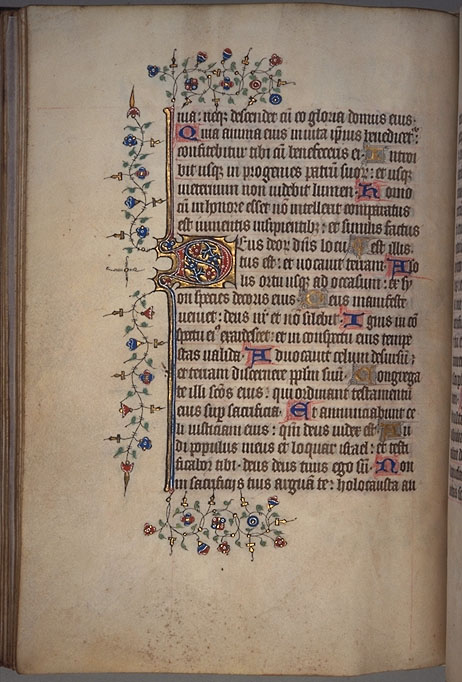 nia: neqꝫ descendet cū eo gloria domus eius.
Quia anima eius in uita ip̄ius benedicet̄:
confitebitur tibi cū benefeceris ei. Introi
bit usqꝫ in progenies patrū suoꝝ: et usqꝫ
in eternum non uidebit lumen. Homo
cū in honore esset nō intellexit: comparatus
est iumentis insipientibꝫ: et similis factus
Deus deoꝝ dn̄s locu est illis.
tus est: et uocauit terram. A so
lis ortu usqꝫ ad occasum: ex sy
on species decoris eius. Deus manifeste
ueniet: deus nr̄ et nō silebit. Ignis in cō
spectu eiꝰ exardescet: et in conspectu eius tempe
stas ualida. Aduocauit celum desursū:
et terram discernere pplm̄ suū. Congrega
te illi scōs eius: qui ordinant testamentū
eius suꝑ sacrificia. Et annunciabunt ce
li iusticiam eius: qm̄ deus iudex est. Au
di populus meus et loquar israel: et testi
ficabor tibi. deus deus tuus ego sū. Non
in sacrificijs tuis arguā te: holocausta au